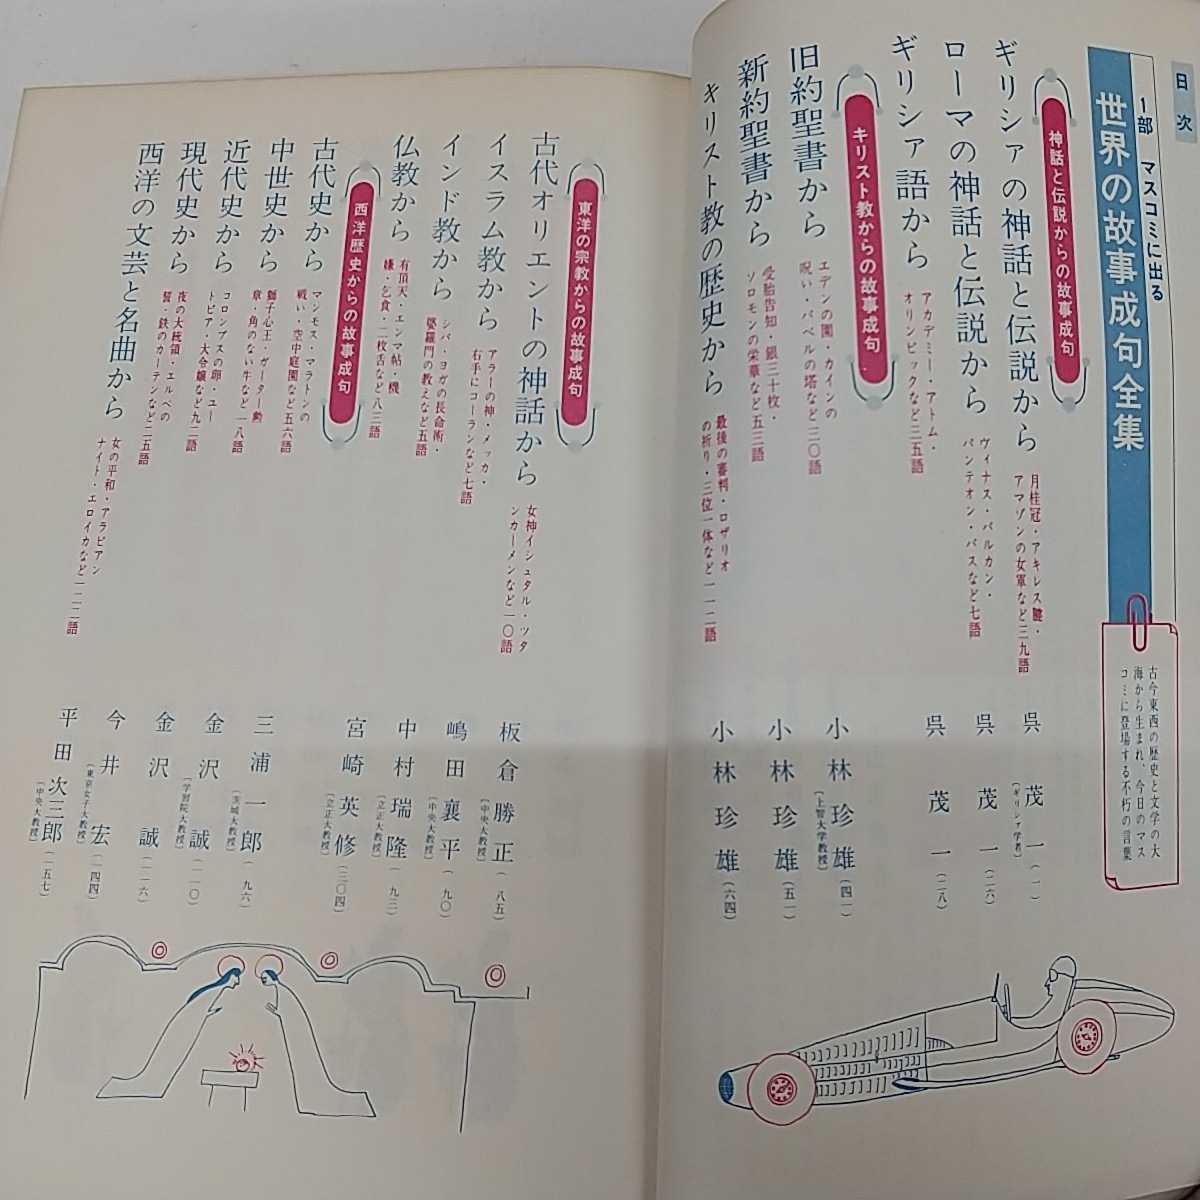 目次
1部 マスコミに出る
世界の故事成句全集
古今東西の歴史と文学の大
海から生まれ、今日のマス
コミに登場する不朽の言葉
神話と伝説からの故事成句
ギリシァの神話と伝説から
月桂冠・アキレス腱・
アマゾンの女軍など三九語
呉 茂一(一)
(ギリシァ学者)
ローマの神話と伝説から
ヴィナス・バルカン・
パンテオン・バスなど七語
呉 茂一(二六)
ギリシァ語から
アカデミー・アトム・
オリンピックなど三五語
呉 茂一(二八)
キリスト教からの故事成句
旧約聖書から
エデンの園・カインの
呪い・バベルの塔など三〇語
小林珍雄(四一)
(上智大学教授)
新約聖書から
受胎告知・銀三十枚・
ソロモンの栄華など五三語
小林珍雄(五一)
キリスト教の歴史から
最後の審判・ロザリオ
の祈り・三位一体など一一二語
小林珍雄(六四)
東洋の宗教からの故事成句
古代オリエントの神話から
女神イシュタル・ツタ
ンカーメンなど一〇語
板倉勝正(八五)
(中央大教授)
イスラム教から
アラーの神・メッカ・
右手にコーランなど七語
嶋田襄平(九〇)
(中央大教授)
インド教から
シバ・ヨガの長命術・
婆羅門の教えなど五語
中村瑞隆(九三)
(立正大教授)
仏教から
有頂天・エンマ帖・機
嫌・乞食・二枚舌など八三語
宮崎英修(三〇四)
(立正大教授)
西洋歴史からの故事成句
古代史から
マンモス・マラトンの
戦い・空中庭園など五六語
三浦一郎(九六)
(茨城大教授)
中世史から
獅子心王・ガーター勲
章・角のない牛など一八語
金沢 誠(一一〇)
(学習院大教授)
近代史から
コロンブスの卵・ユー
トピア・大令嬢など九二語
金沢 誠(一一六)
現代史から
夜の大統領・エルベの
誓・鉄のカーテンなど二五語
今井 宏(一四四)
(東京女子大教授)
西洋の文芸と名曲から
女の平和・アラビアン
ナイト・エロイカなど一二二語
平田次三郎(一五七)
(中央大教授)